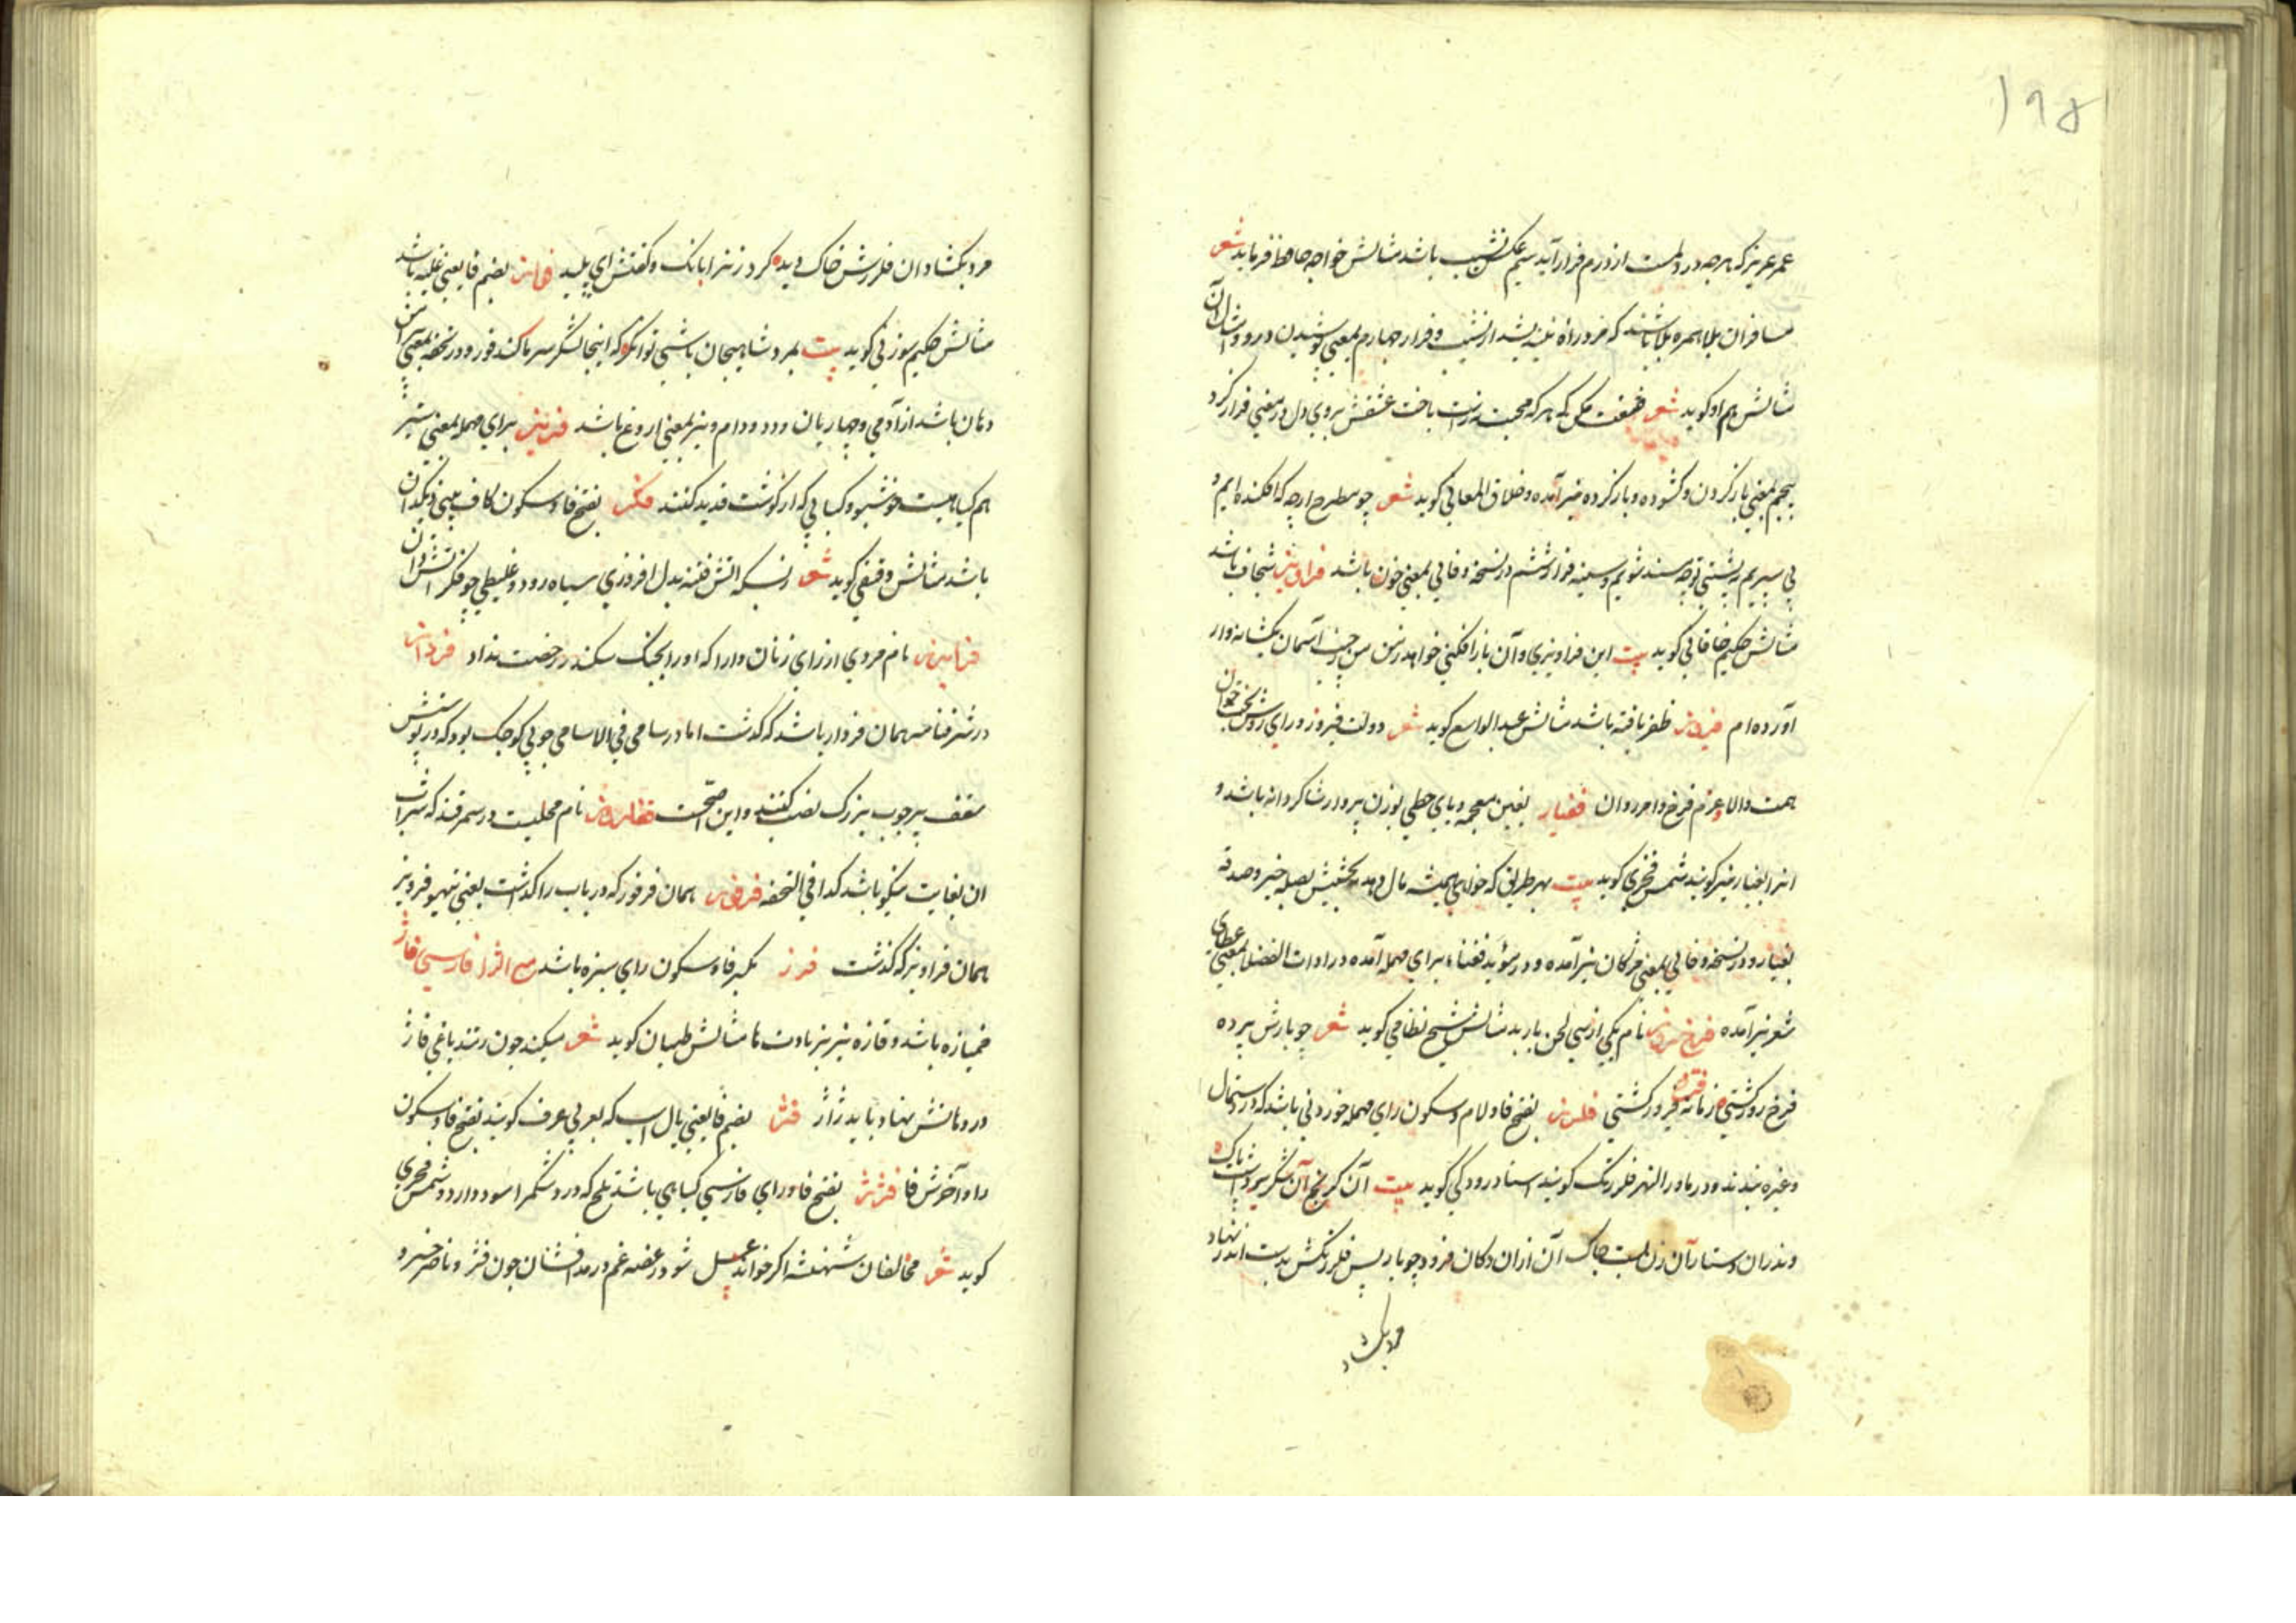 ۱۹۵
عمر عزیز که هرچه در دلست از درم فراز آید سیم عکس نشیب باشد مثالش خواجه حافظ فرماید شعر
مسافران بلا همره بلا باشند که مرد راه نیندیشد از نشیب و فراز چهارم بمعنی پوشیدن در و امثال آن
مثالش هم او گوید شعر صنعت مکن که هر که محبت نه راست باخت عشقش بروی دل در معنی فراز کرد
پنجم بمعنی باز کردن و گشوده و باز کرده نیز آمده و خلاق المعانی گوید شعر چو مطرح ارچه که افکنده ایم و
پی سپریم به پشتی تو چه مسند شویم و سینه فراز ششم در نسخه وفائی بمعنی خون باشد فراویز سجاف باشد
مثالش حکیم خاقانی گوید بیت این فراویزی و آن باز افکنی خواهد ز من من ز جیب آسمان یک شانه وار
آورده ام فیروز ظفر یافته باشد مثالش عبد الواسع گوید شعر دولت فیروز و رای روشن بخت جوان
همت والا و عزم فرخ و امر روان فغیاز بغین معجمه و یای حطی بوزن پرواز شاگردانه باشد و
انرا بغیاز نیز گویند شمس فخری گوید بیت بهر طریق که خواهی همیشه مال دهد به بخشش بصله خیر و صدقه
بغیاز و در نسخه وفائی بمعنی مژگان نیز آمده و در مؤید فغناء برای مهمله آمده در ادات الفضلا بمعنی عطای
شعر نیز آمده فرخ روز نام یکی از سی لحن باربد مثالش شیخ نظامی گوید شعر چو بارش پرده
فرخ روز گشتی زمانه فرخ و فیروز گشتی فلرز بفتح فا و لام و سکون رای مهمله خوردنی باشد که در دستمال
و غیره بندند و در ماورا النهر فلرزنک گویند استاد رودکی گوید بیت آن کرنج آن شکر برداشت پاک
وندران دستار آن زن بست چاک آن زن از دکان فرود چو باد پس فلرزنکش بدست اندر نهاد
مرد بکشاد
مرد بکشاد ان فلرزش خاک دید کرد زن را بانک و گفتش ای پلید فراز بضم فا یعنی غلبه باشد
مثالش حکیم سوزنی گوید بیت بمرو شاهیجان باشی توانگر که اینجا لشکر سرما کند فوز و در تحفه بمعنی پیرامن
دهان باشد از آدمی و چهارپایان و دد و دام و نیز بمعنی اروغ باشد فریز برای مهمله بمعنی ستبر
هم گیاهیست خوشبو و کبابی که از گوشت قدید کنند فکز بفتح فا و سکون کاف یعنی دیکدان
باشد مثالش دقیقی گوید شعر ز بسکه اتش فتنه بدل افروزی سیاه رود و غلیظی چو فکز اتشدان
فرابرز نام مردی از رای زنان دارا که او را بجنک سکندر رخصت نداد فردار
در شرفنامه همان فروار باشد که گذشت اما در سامی فی الاسامی چوبی کوچک بود که در پوشش
سقف بر چوب بزرک نصب کنند و این اصحست فغلرز نام محلیست در سمرقند که شراب
ان بغایت نیکو باشد کذا فی التحفه فرفوز همان فرفور که در باب را گذشت یعنی تیهو فرویز
همان فراویز که گذشت فرز بکسر فا و سکون رای سبزه باشد مع الزا فارسی فاژ
خمیازه باشد و فاژه نیز بزیادت ها مثالش طیان گوید شعر میکند چون زند باغی فاژ
در دهانش نهاد باید ژاژ فژ بضم فا یعنی یال اسب که بعربی عرف گویند بفتح فا و سکون
را و آخرش فا فرژ بفتح فا و رای فارسی گیاهی باشد تلخ که درد شکم را سود دارد و شمس فخری
گوید شعر مخالفان شهنشه اگر خوانند عسل شود ز غصه غم در مذاقشان چون فرژ و ناصر خسرو